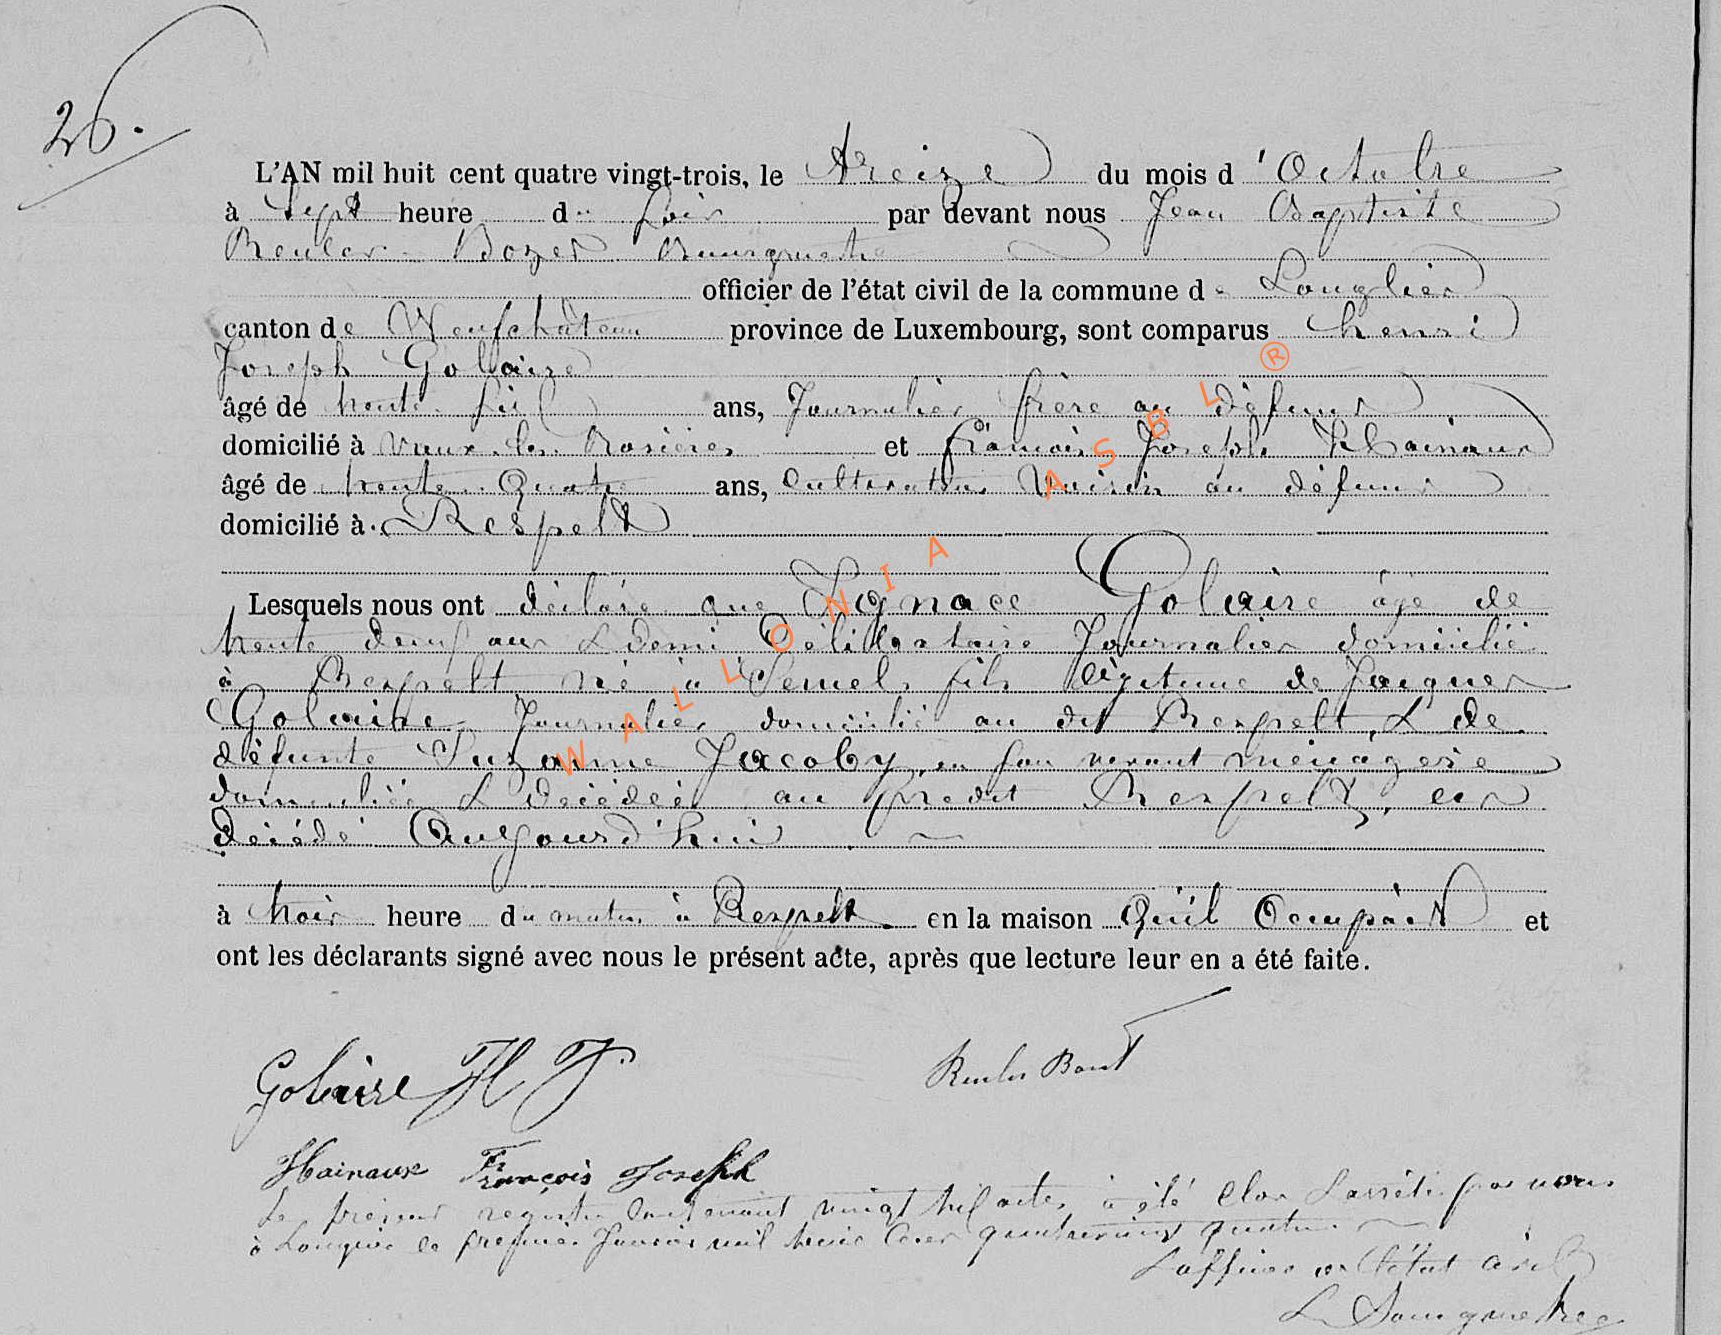 26.
L'AN mil huit cent quatre vingt-trois, le treize du mois d'Octobre
à Sept heure du Soir par devant nous Jean Baptiste
Reuler Bozet Bourgmestre
officier de l'état civil de la commune de Longlier
canton de Neufchâteau province de Luxembourg, sont comparus henri
Joseph Golaire
âgé de trente Six ans, Journalier frère au défunt
domicilié à Vaux-les-Rosières et françois Joseph Hainaux
âgé de trente Quatre ans, Cultivateur Voisin au défunt
domicilié à Respelt
Lesquels nous ont déclaré que Ignace Golaire âgé de
trente deux ans & demi Célibataire Journalier domicilié
à Respelt né à Semel fils légitime de Jacques
Golaire Journalier domicilié au dit Respelt & de
défunte Suzanne Jacoby, en son vivant ménagère
domiciliée & décédée au predit Respelt, est
décédé Aujourd'hui
à trois heure du matin à Respelt en la maison Qu'il Occupait et
ont les déclarants signé avec nous le présent acte, après que lecture leur en a été faite.
Golaire H J.
Hainaux François Joseph
Le présent registre Contenant vingt Six actes, a été Clos & arrêté par nous
à Longlier le premier Janvier mil huit Cent quatrevingt quatre.
L'officier de l'état civil
Le Bourgmestre
WALLONIA ASBL ®